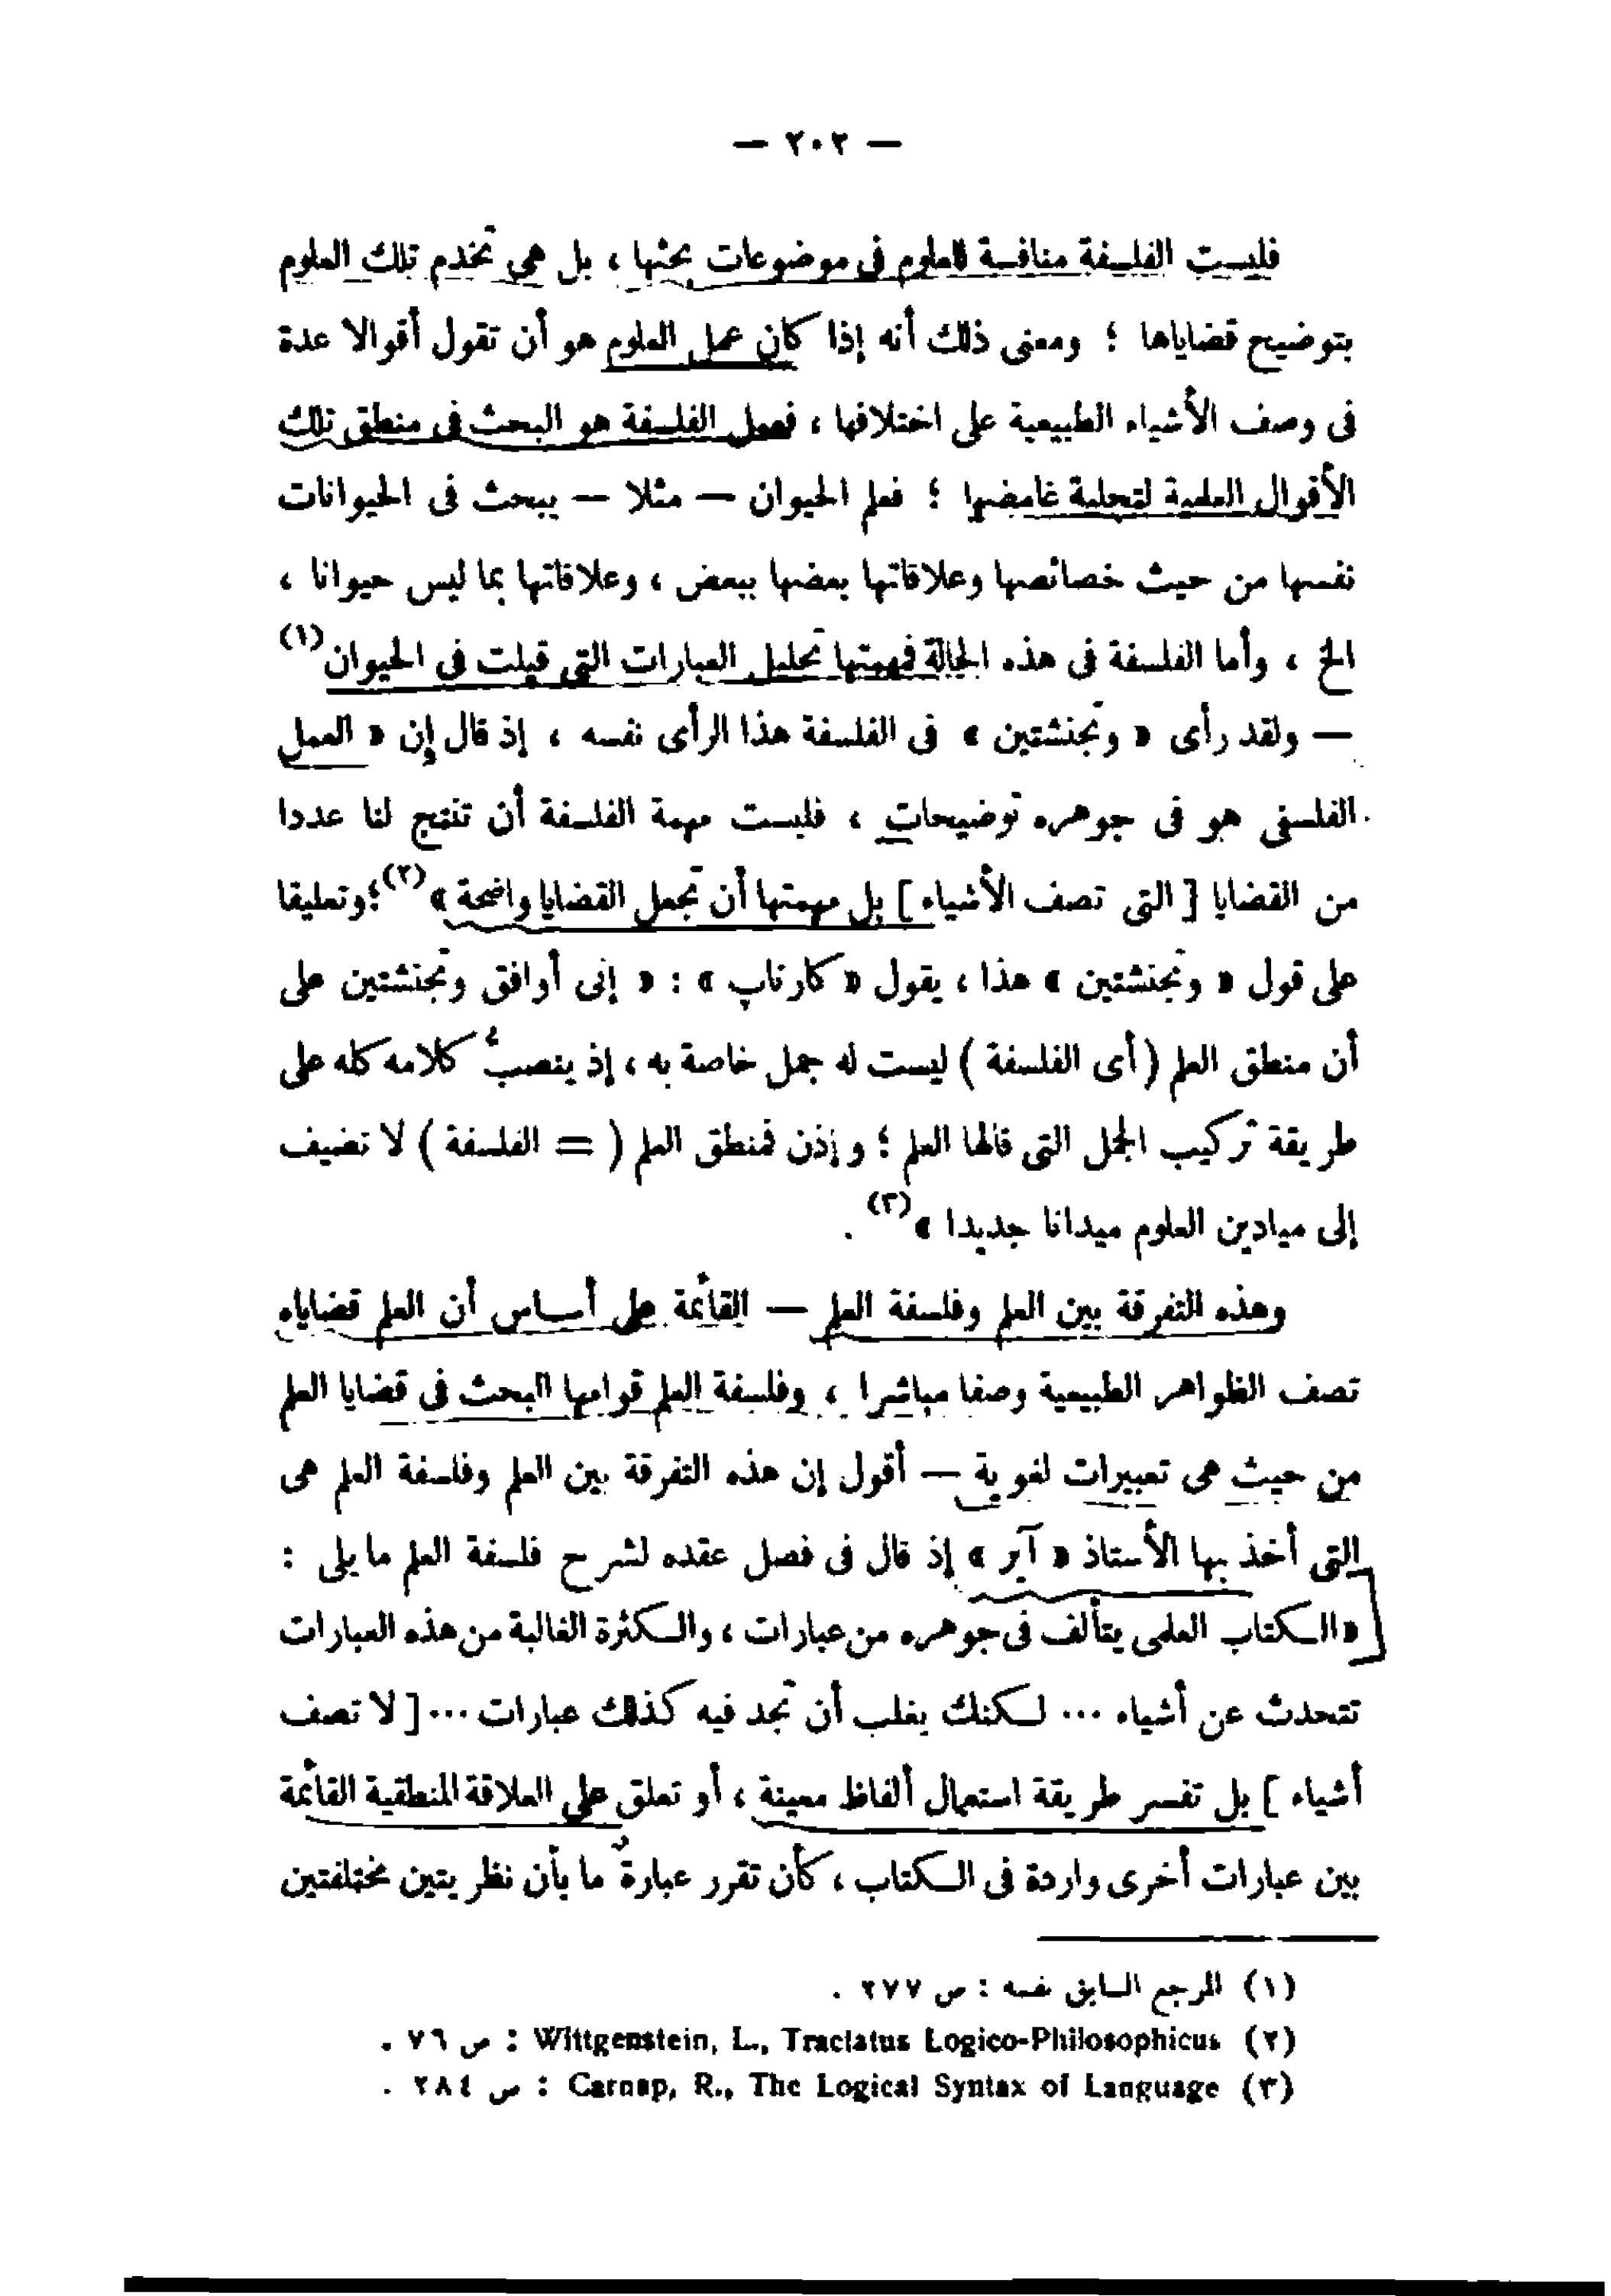 — ٢٠٢ —
فليست الفلسفة منافسة للعلوم فى موضوعات بحثها ، بل هى تخدم تلك العلوم
بتوضيح قضاياها ؛ ومعنى ذلك أنه إذا كان عمل العلوم هو أن تقول أقوالا عدة
فى وصف الأشياء الطبيعية على اختلافها ، فعمل الفلسفة هو البحث فى منطق تلك
الأقوال العلمية لتجلية غامضها ؛ فعلم الحيوان — مثلا — يبحث فى الحيوانات
نفسها من حيث خصائصها وعلاقاتها بعضها ببعض ، وعلاقاتها بما ليس حيوانا ،
الخ ، وأما الفلسفة فى هذه الحالة فمهمتها تحليل العبارات التى قيلت فى الحيوان(١)
— ولقد رأى « وتجنشتين » فى الفلسفة هذا الرأى نفسه ، إذ قال إن « العمل
الفلسفى هو فى جوهره توضيحات ، فليست مهمة الفلسفة أن تنتج لنا عددا
من القضايا [ التى تصف الأشياء ] بل مهمتها أن تجعل القضايا واضحة »(٢)؛ وتعليقا
على قول « وتجنشتين » هذا ، يقول « كارناپ » : « إنى أوافق وتجنشتين على
أن منطق العلم ( أى الفلسفة ) ليست له جمل خاصة به ، إذ ينصبّ كلامه كله على
طريقة تركيب الجمل التى قالها العلم ؛ وإذن فمنطق العلم ( = الفلسفة ) لا تضيف
إلى ميادين العلوم ميدانا جديدا »(٣) .
وهذه التفرقة بين العلم وفلسفة العلم — القائمة على أساس أن العلم قضاياه
تصف الظواهر الطبيعية وصفا مباشرا ، وفلسفة العلم قوامها البحث فى قضايا العلم
من حيث هى تعبيرات لغوية — أقول إن هذه التفرقة بين العلم وفلسفة العلم هى
التى أخذ بها الأستاذ « آير » إذ قال فى فصل عقده لشرح فلسفة العلم ما يلى :
« الكتاب العلمى يتألف فى جوهره من عبارات ، والكثرة الغالبة من هذه العبارات
تتحدث عن أشياء ... لكنك يغلب أن تجد فيه كذلك عبارات ... [ لا تصف
أشياء ] بل تفسر طريقة استعمال ألفاظ معينة ، أو تعلق على العلاقة المنطقية القائمة
بين عبارات أخرى واردة فى الكتاب ، كأن تقرر عبارةٌ ما بأن نظريتين مختلفتين
(١) المرجع السابق نفسه : ص ٢٧٧ .
(٢) Wittgenstein, L., Tractatus Logico-Philosophicus : ص ٧٦ .
(٣) Carnap, R., The Logical Syntax of Language : ص ٢٨٤ .